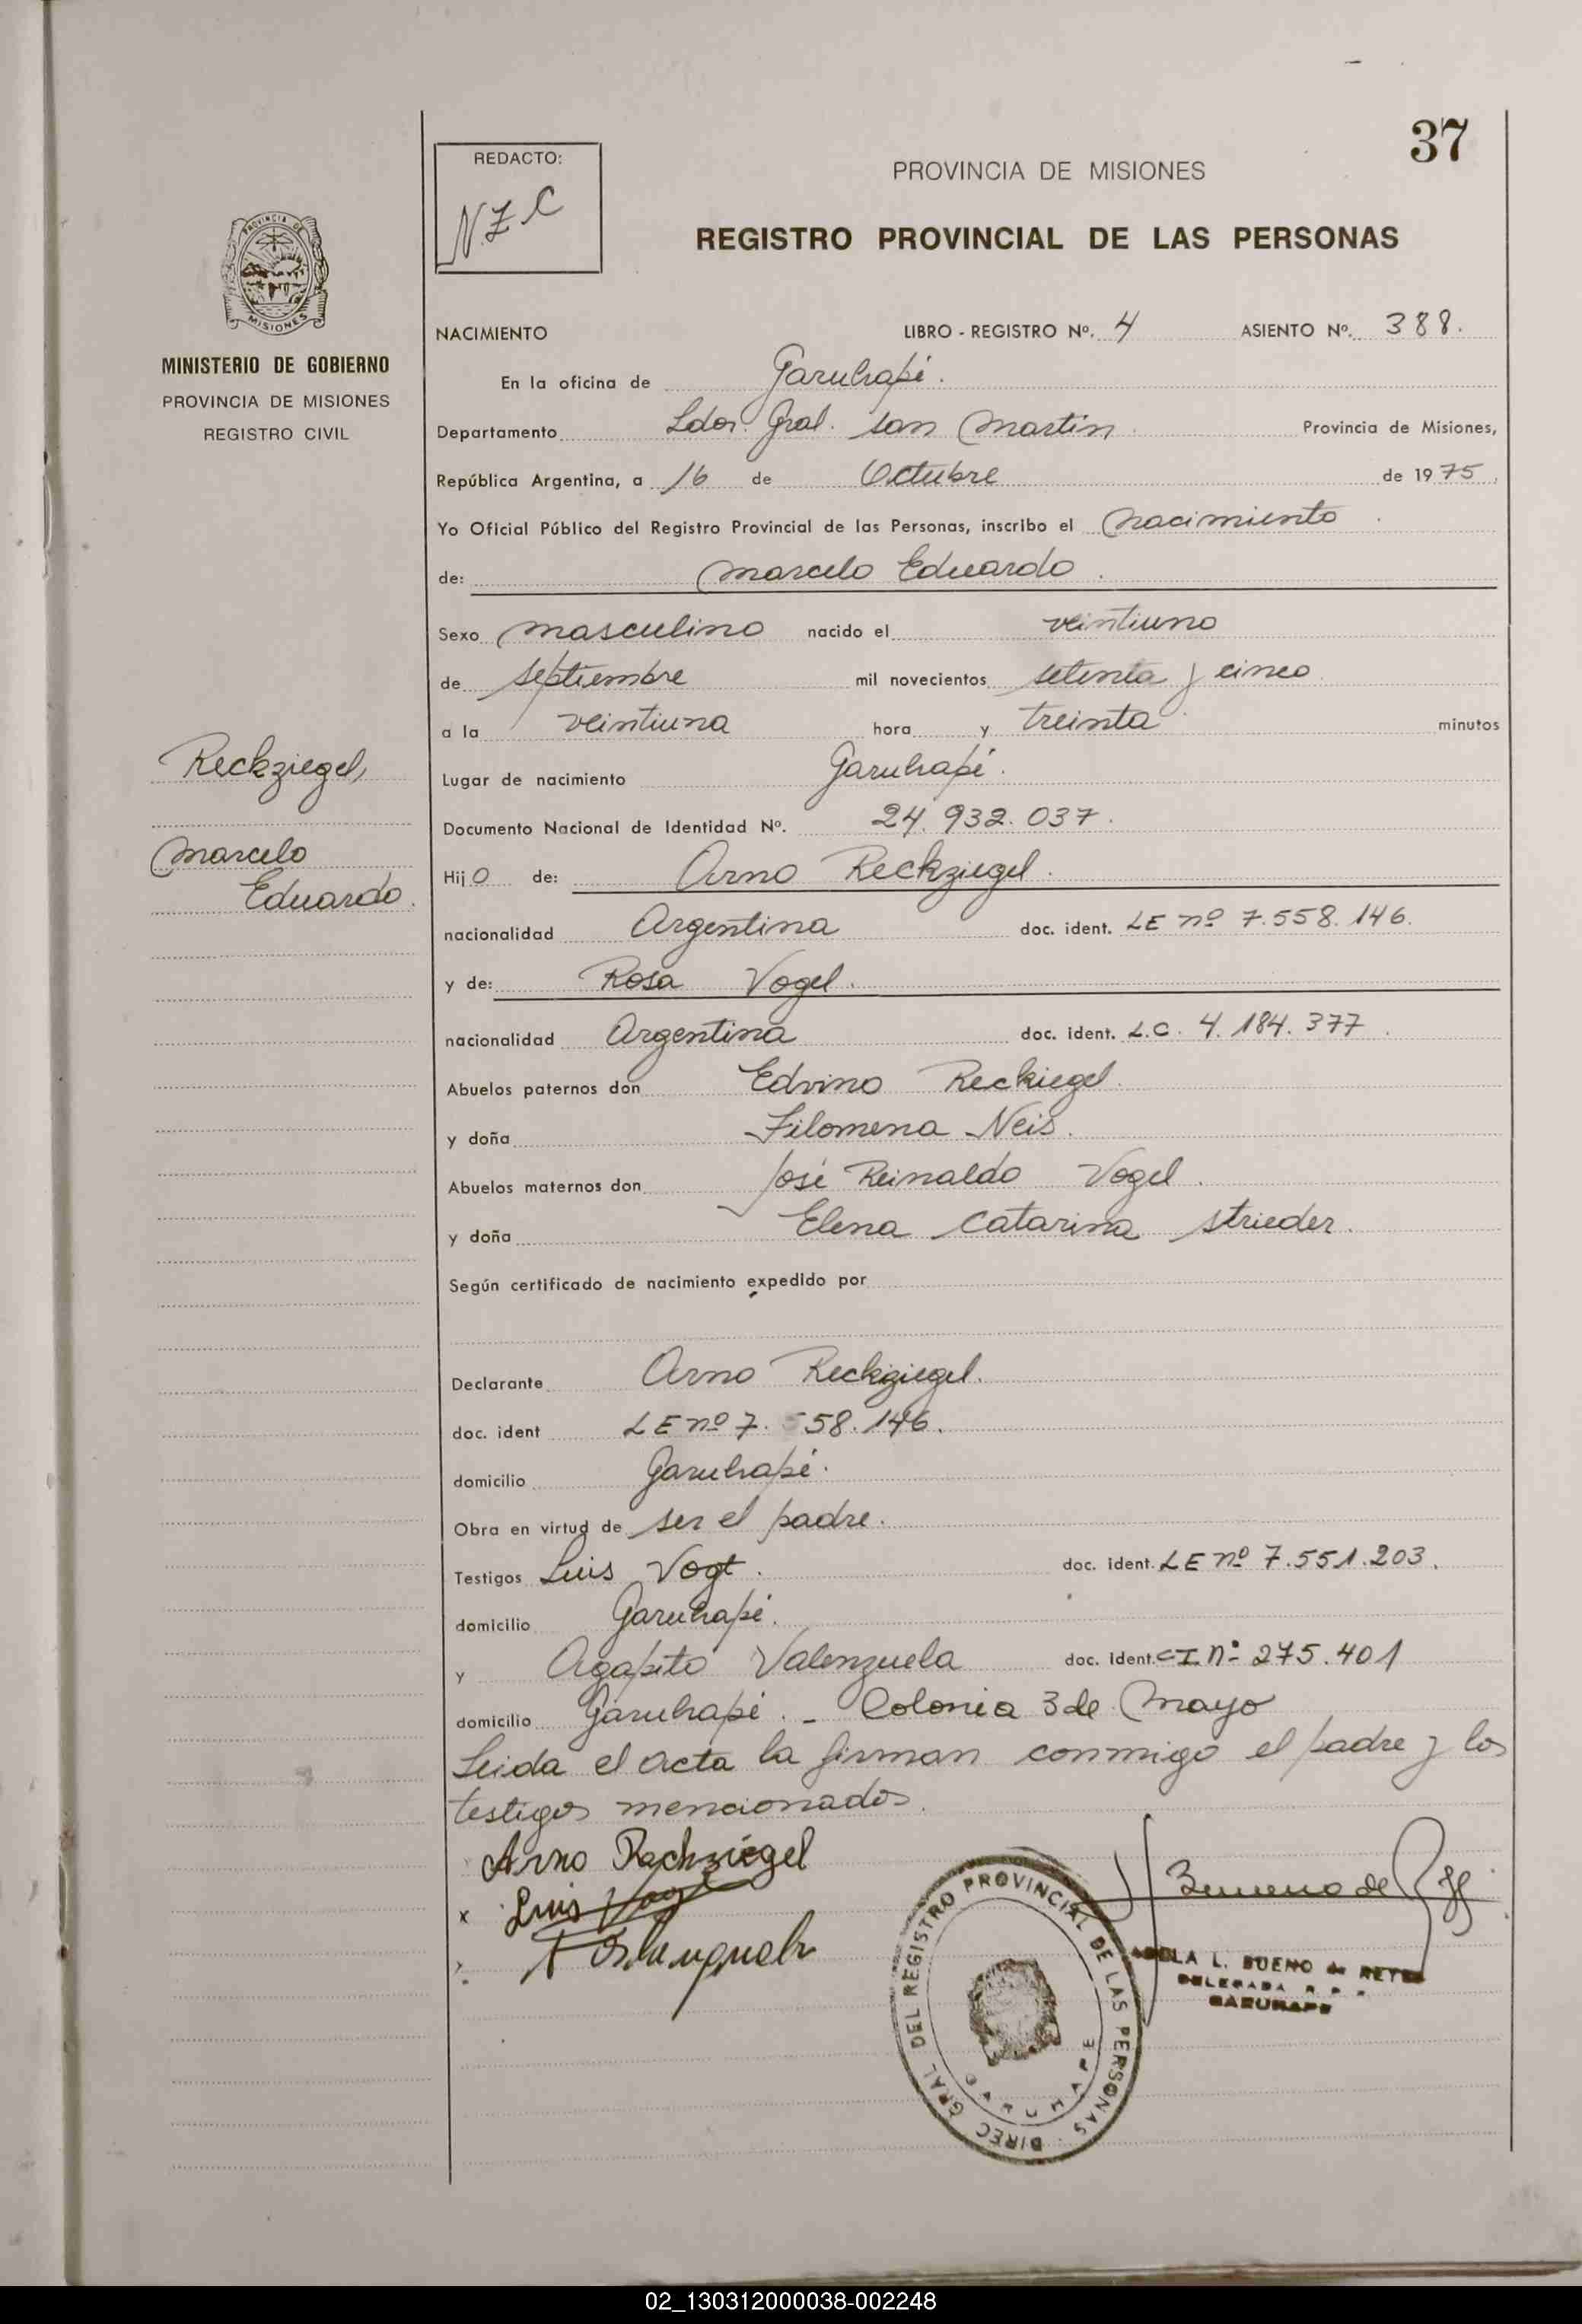 37
REDACTO:
N.Z C
PROVINCIA DE MISIONES
REGISTRO PROVINCIAL DE LAS PERSONAS
PROVINCIA DE
MISIONES
MINISTERIO DE GOBIERNO
PROVINCIA DE MISIONES
REGISTRO CIVIL
NACIMIENTO LIBRO - REGISTRO Nº. 4 ASIENTO Nº. 388.
En la oficina de Garuhapé.
Departamento Ldor. Gral. San Martin Provincia de Misiones,
República Argentina, a 16 de Octubre de 1975,
Yo Oficial Público del Registro Provincial de las Personas, inscribo el nacimiento
de: Marcelo Eduardo.
Sexo masculino nacido el veintiuno
de septiembre mil novecientos setenta y cinco
a la veintiuna hora y treinta minutos
Lugar de nacimiento Garuhapé.
Documento Nacional de Identidad Nº. 24.932.037.
Reckziegel,
Marcelo
Eduardo.
Hijo de: Arno Reckziegel.
nacionalidad Argentina doc. ident. LE nº 7.558.146.
y de: Rosa Vogel.
nacionalidad Argentina doc. ident. L.C. 4.184.377.
Abuelos paternos don Edvino Reckiegel.
y doña Filomena Neis.
Abuelos maternos don José Reinaldo Vogel.
y doña Elena Catarina Strieder.
Según certificado de nacimiento expedido por
Declarante Arno Reckziegel.
doc. ident LE nº 7.558.146.
domicilio Garuhapé.
Obra en virtud de ser el padre.
Testigos Luis Vogt. doc. ident. LE nº 7.551.203.
domicilio Garuhapé.
y Agapito Valenzuela doc. ident. CI. nº 275.401
domicilio Garuhapé. - Colonia 3 de Mayo
Leida el acta la firman conmigo el padre y los
testigos mencionados.
Arno Rachziegel
x Luis Vogt
DIREC. GRAL. DEL REGISTRO PROVINCIAL DE LAS PERSONAS
GARUHAPE
ADELA L. BUENO de REYES
DELEGADA R. P. P.
GARUHAPE
02_130312000038-002248